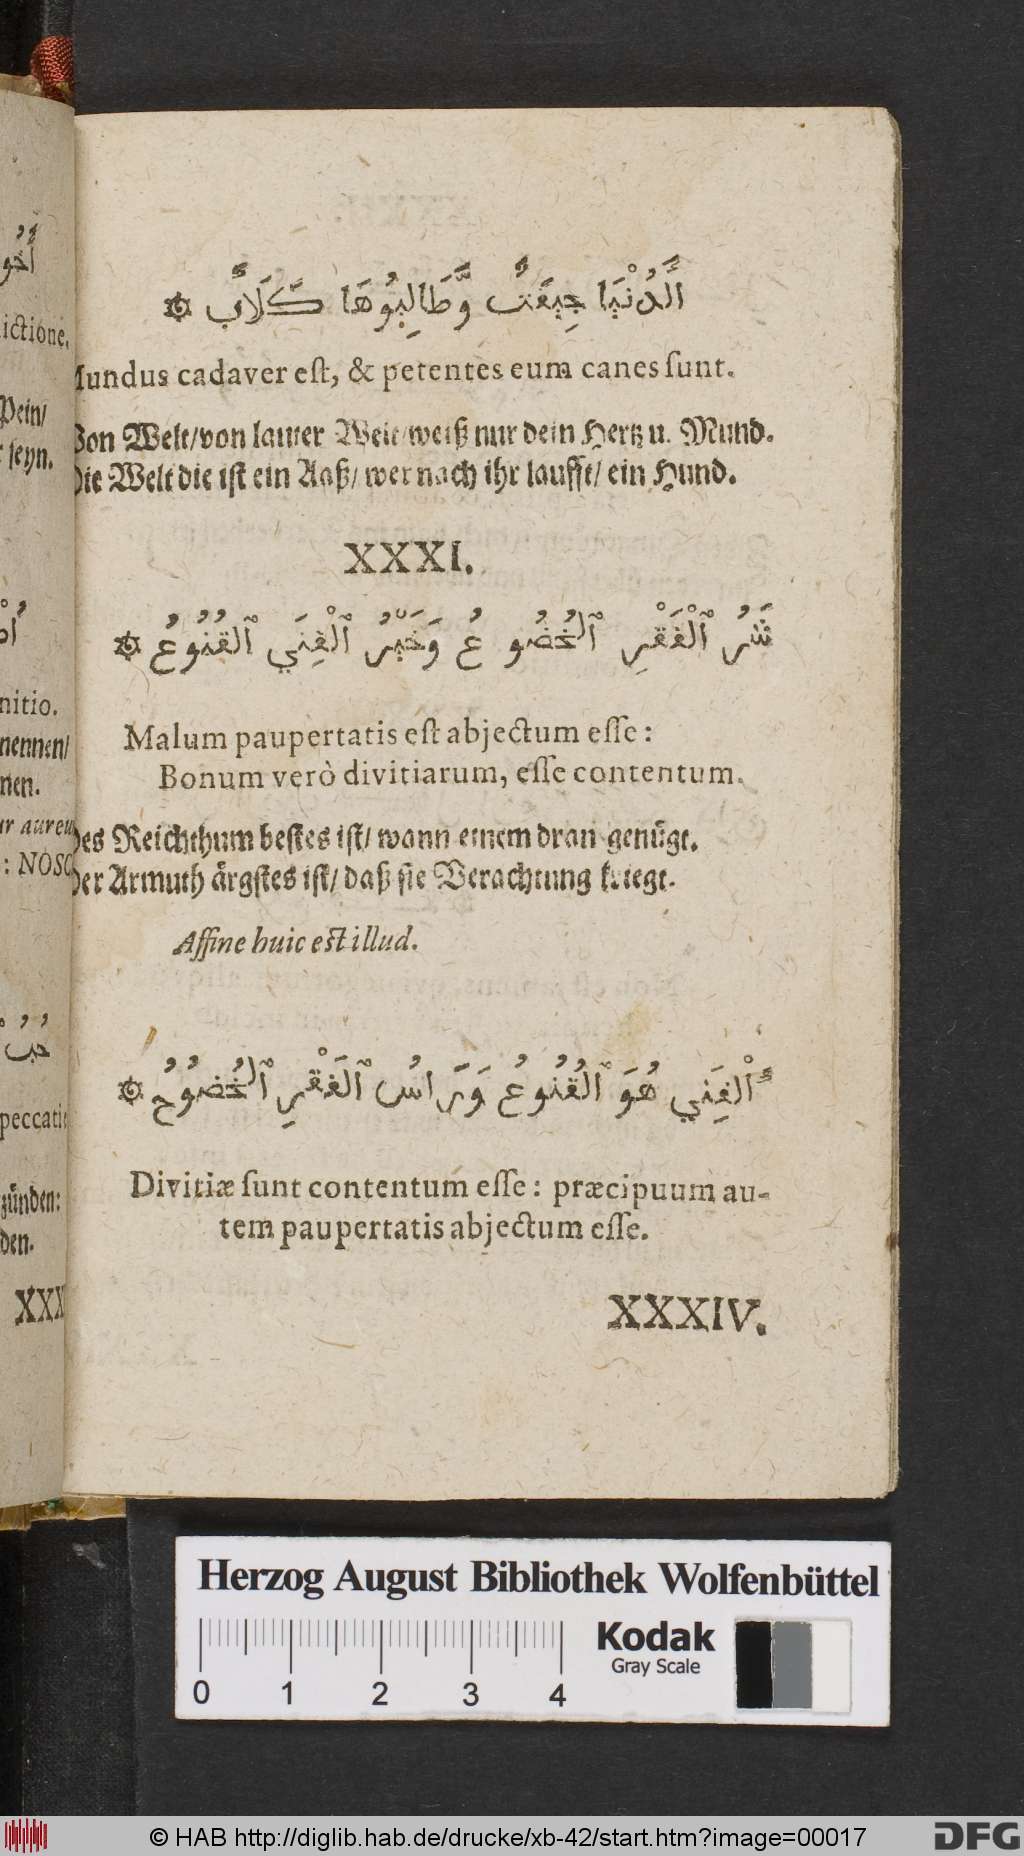 أَلدُنْيَا جِيفَتٌ وَّطَالِبُوهَا كَلَابٌ ۞
Mundus cadaver est, & petentes eum canes sunt.
Von Welt/von lauter Welt/weiß nur dein Hertz u. Mund.
Die Welt die ist ein Aaß/ wer nach ihr laufft/ ein Hund.
XXXI.
شَرُ ٱلْفَقْرِ ٱلخُضُوعُ وَخَيْرُ ٱلْغِنَي ٱلقُنُوعُ ۞
Malum paupertatis est abjectum esse:
Bonum verò divitiarum, esse contentum.
Des Reichthum bestes ist/ wann einem dran genügt.
Der Armuth ärgstes ist/ daß sie Verachtung kriegt.
Affine huic est illud.
أْلغِنَي هُوَ ٱلقُنُوعُ وَرَاسُ ٱلفَقْرِ ٱلخُضُوحُ ۞
Divitiæ sunt contentum esse: præcipuum au-
tem paupertatis abjectum esse.
XXXIV.
ictione.
Pein/
seyn.
nitio.
nennen/
nen.
ur aureu
: NOSC
حب
peccati
zünden:
den.
XXX
Herzog August Bibliothek Wolfenbüttel
Kodak
Gray Scale
0 1 2 3 4
© HAB http://diglib.hab.de/drucke/xb-42/start.htm?image=00017
DFG